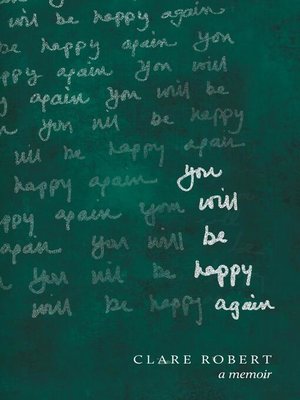 will be happy again
be happy again you
happy again you will
again you will be
you will be happy
will be happy again
happy again you
happy again you will
again you will be
you will be happy
will be happy again
CLARE ROBERT
a memoir